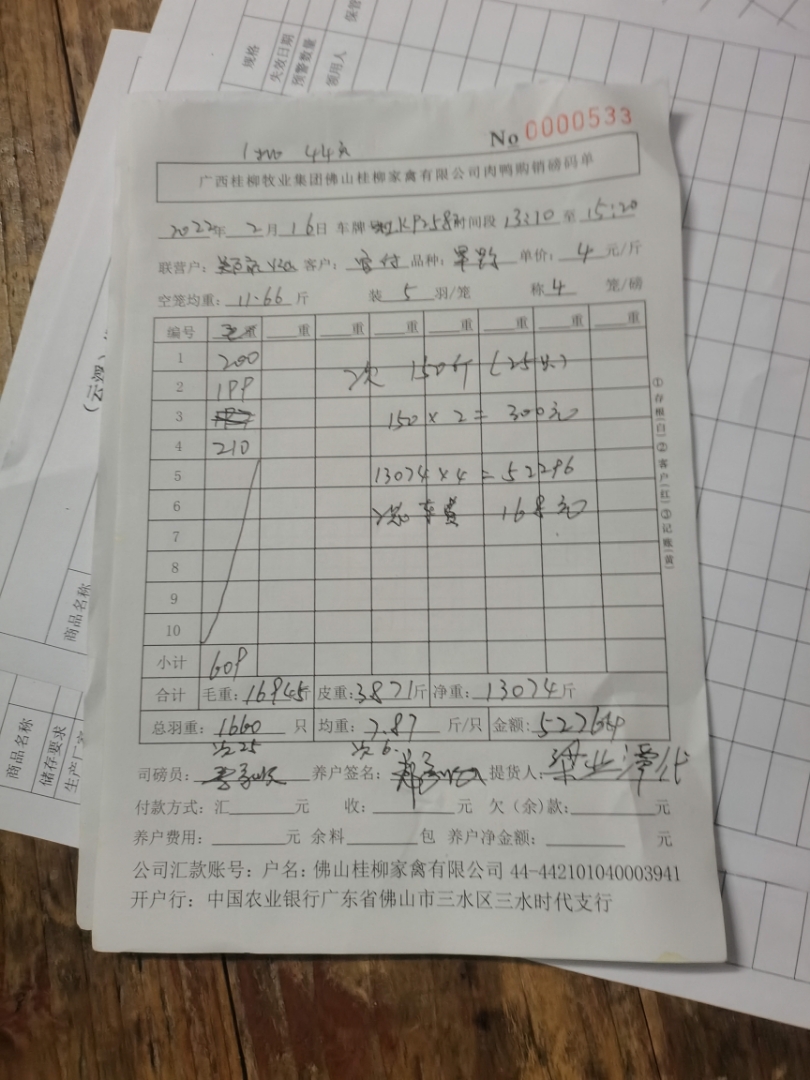 规格
失效日期
预警数量
领用人
保管
No 0000533
44只
广西桂柳牧业集团佛山桂柳家禽有限公司肉鸭购销磅码单
2022年 2月 16日 车牌 时间段 13:10 至 15:20
联营户： 客户： 品种： 单价： 4 元/斤
空笼均重： 11.66 斤 装 5 羽/笼 称 4 笼/磅
编号 毛重 重 重 重 重 重 重 重
1 200
2 199 次 150斤 (25只)
3 150 × 2 = 300元
4 210
5 13074 × 4 = 52296
6 车费 168元
7
8
9
10
小计 609
合计 毛重：16945斤 皮重：3871斤 净重：13074斤
总羽重： 1660 只 均重： 7.87 斤/只 金额： 52764
次25 次6.
司磅员： 养户签名： 提货人： 梁业泽代
付款方式：汇 元 收： 元 欠（余）款： 元
养户费用： 元 余料 包 养户净金额： 元
公司汇款账号：户名：佛山桂柳家禽有限公司 44-442101040003941
开户行：中国农业银行广东省佛山市三水区三水时代支行
①存根(白)②客户(红)③记账(黄)
商品名称
商品名称
储存要求